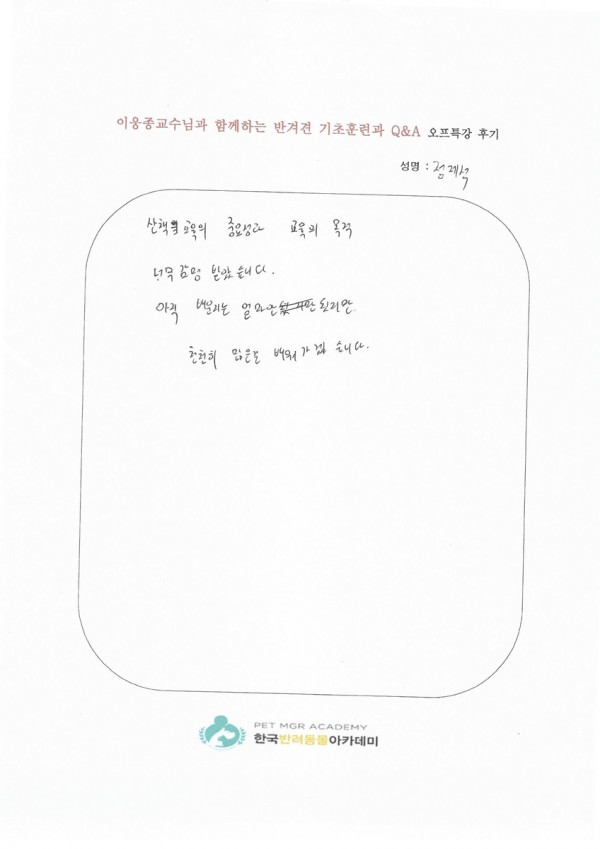 이웅종교수님과 함께하는 반겨견 기초훈련과 Q&A 오프특강 후기
성명 : 정재석
산책 교육의 중요성과 교육의 목적
너무 감명 받았습니다.
아직 배운지는 얼마안 된지만
천천히 많은걸 배워가겠습니다.
PET MGR ACADEMY
한국반려동물아카데미